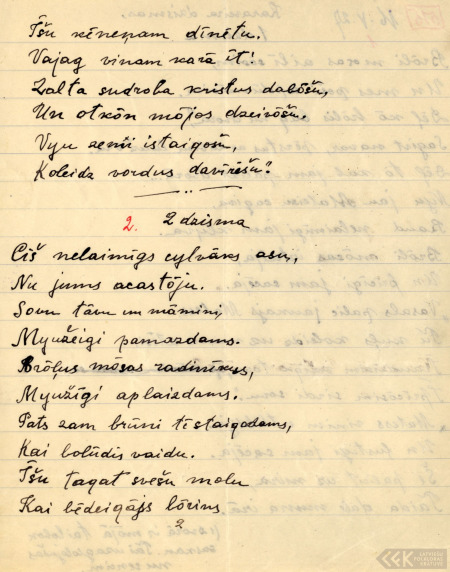 Īšu kēneņam dīnētu.
Vajag vinam karā īt!
Zalta sudroba kristus dabōšu,
Un otkōn mōjos dzeivōšu.
Vyu zemi istaigošu,
Koleidz vordus davīrēšu."
2. 2 dzisma
Ciš nelaimīgs cylvāns asu,
Nu jums acastōju.
Sovu tāvu un māmini,
Myužeigi pamazdams.
Brōļus mōsas radinīkus,
Myužīgi aplaizdams.
Pats zam brūni tēstaigodams,
Kai bolūdis vaidu.
Īšu tagat svešu molu
Kai bēdeigājs lōriņš
2